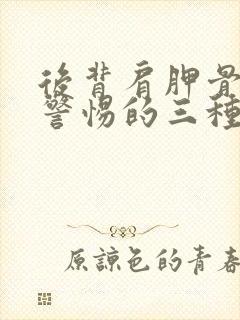 後背肩胛骨
警惕的三種
原諒色的青春